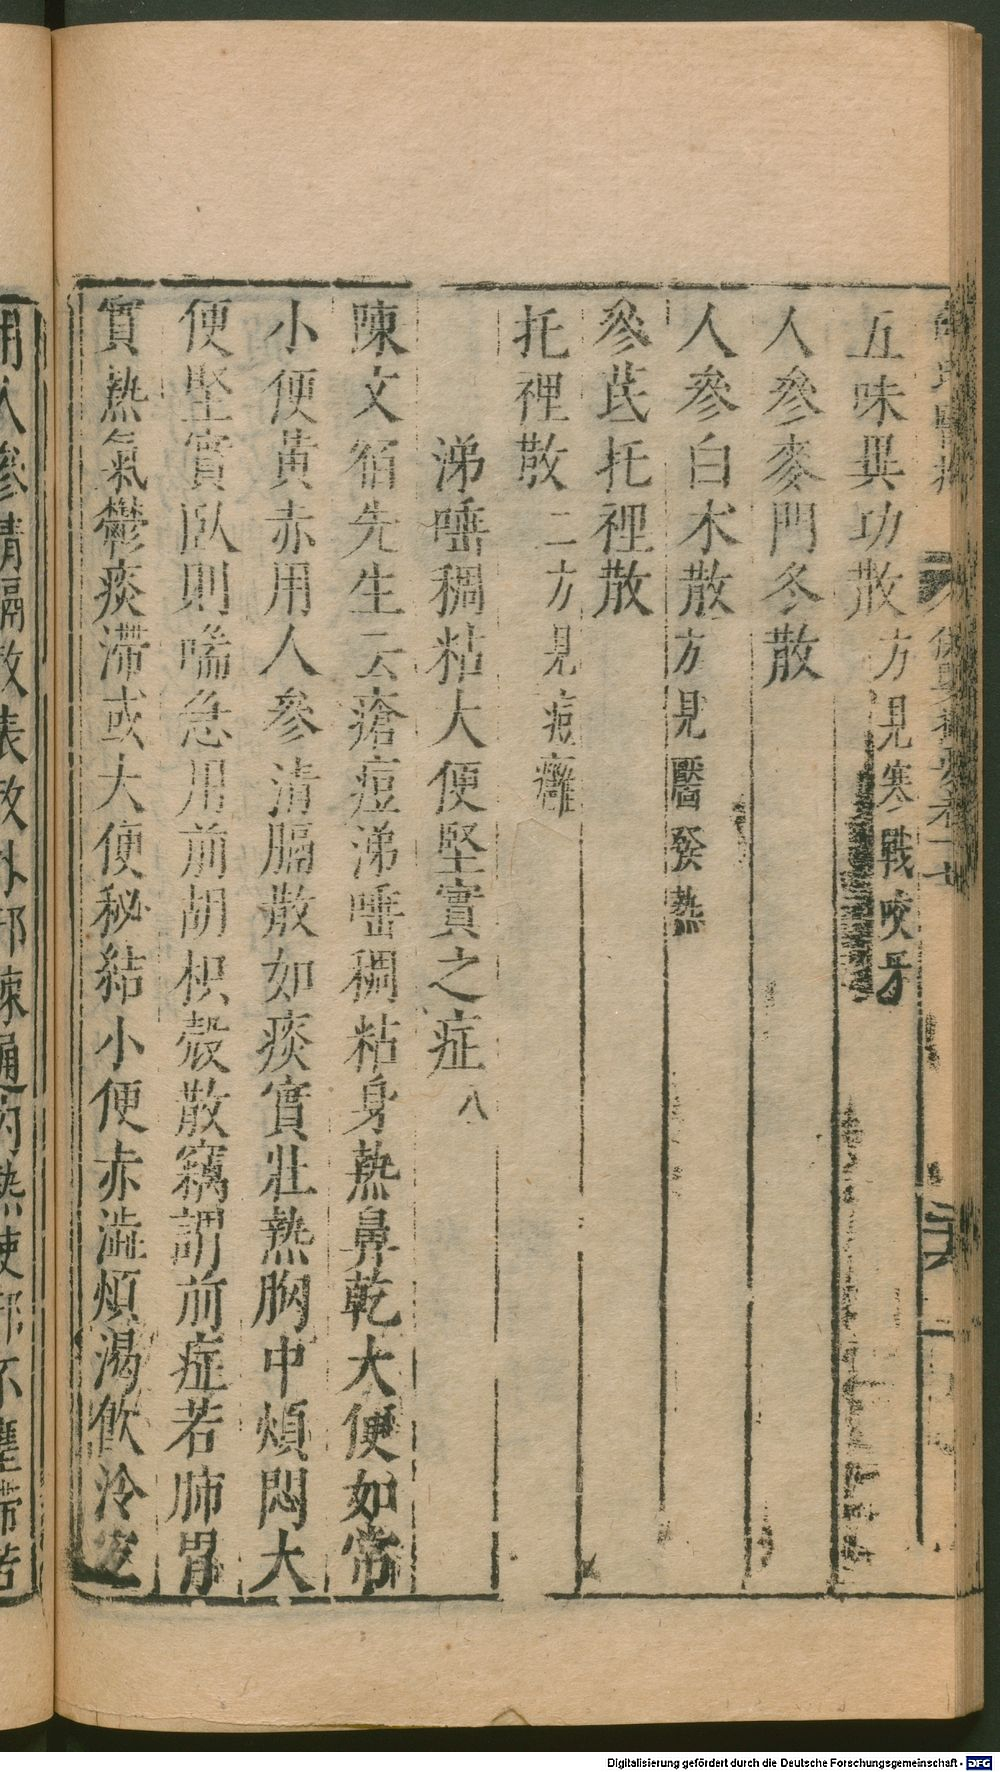 五味異功散方見寒戰咬牙
人參麥門冬散
人參白朮散方見靨發熱
參芪托裡散
托裡散二方見痘癰
涕唾稠粘大便堅實之症八
陳文宿先生云瘡痘涕唾稠粘身熱鼻乾大便如常
小便黃赤用人參清膈散如痰實壯熱胸中煩悶大
便堅實臥則喘急用前胡枳殼散竊謂前症若肺胃
實熱氣鬱痰滯或大便秘結小便赤澁煩渴飲冷宜
用人參清膈散表散外邪疎通內熱使邪不壅滯若
Digitalisierung gefördert durch die Deutsche Forschungsgemeinschaft - DFG